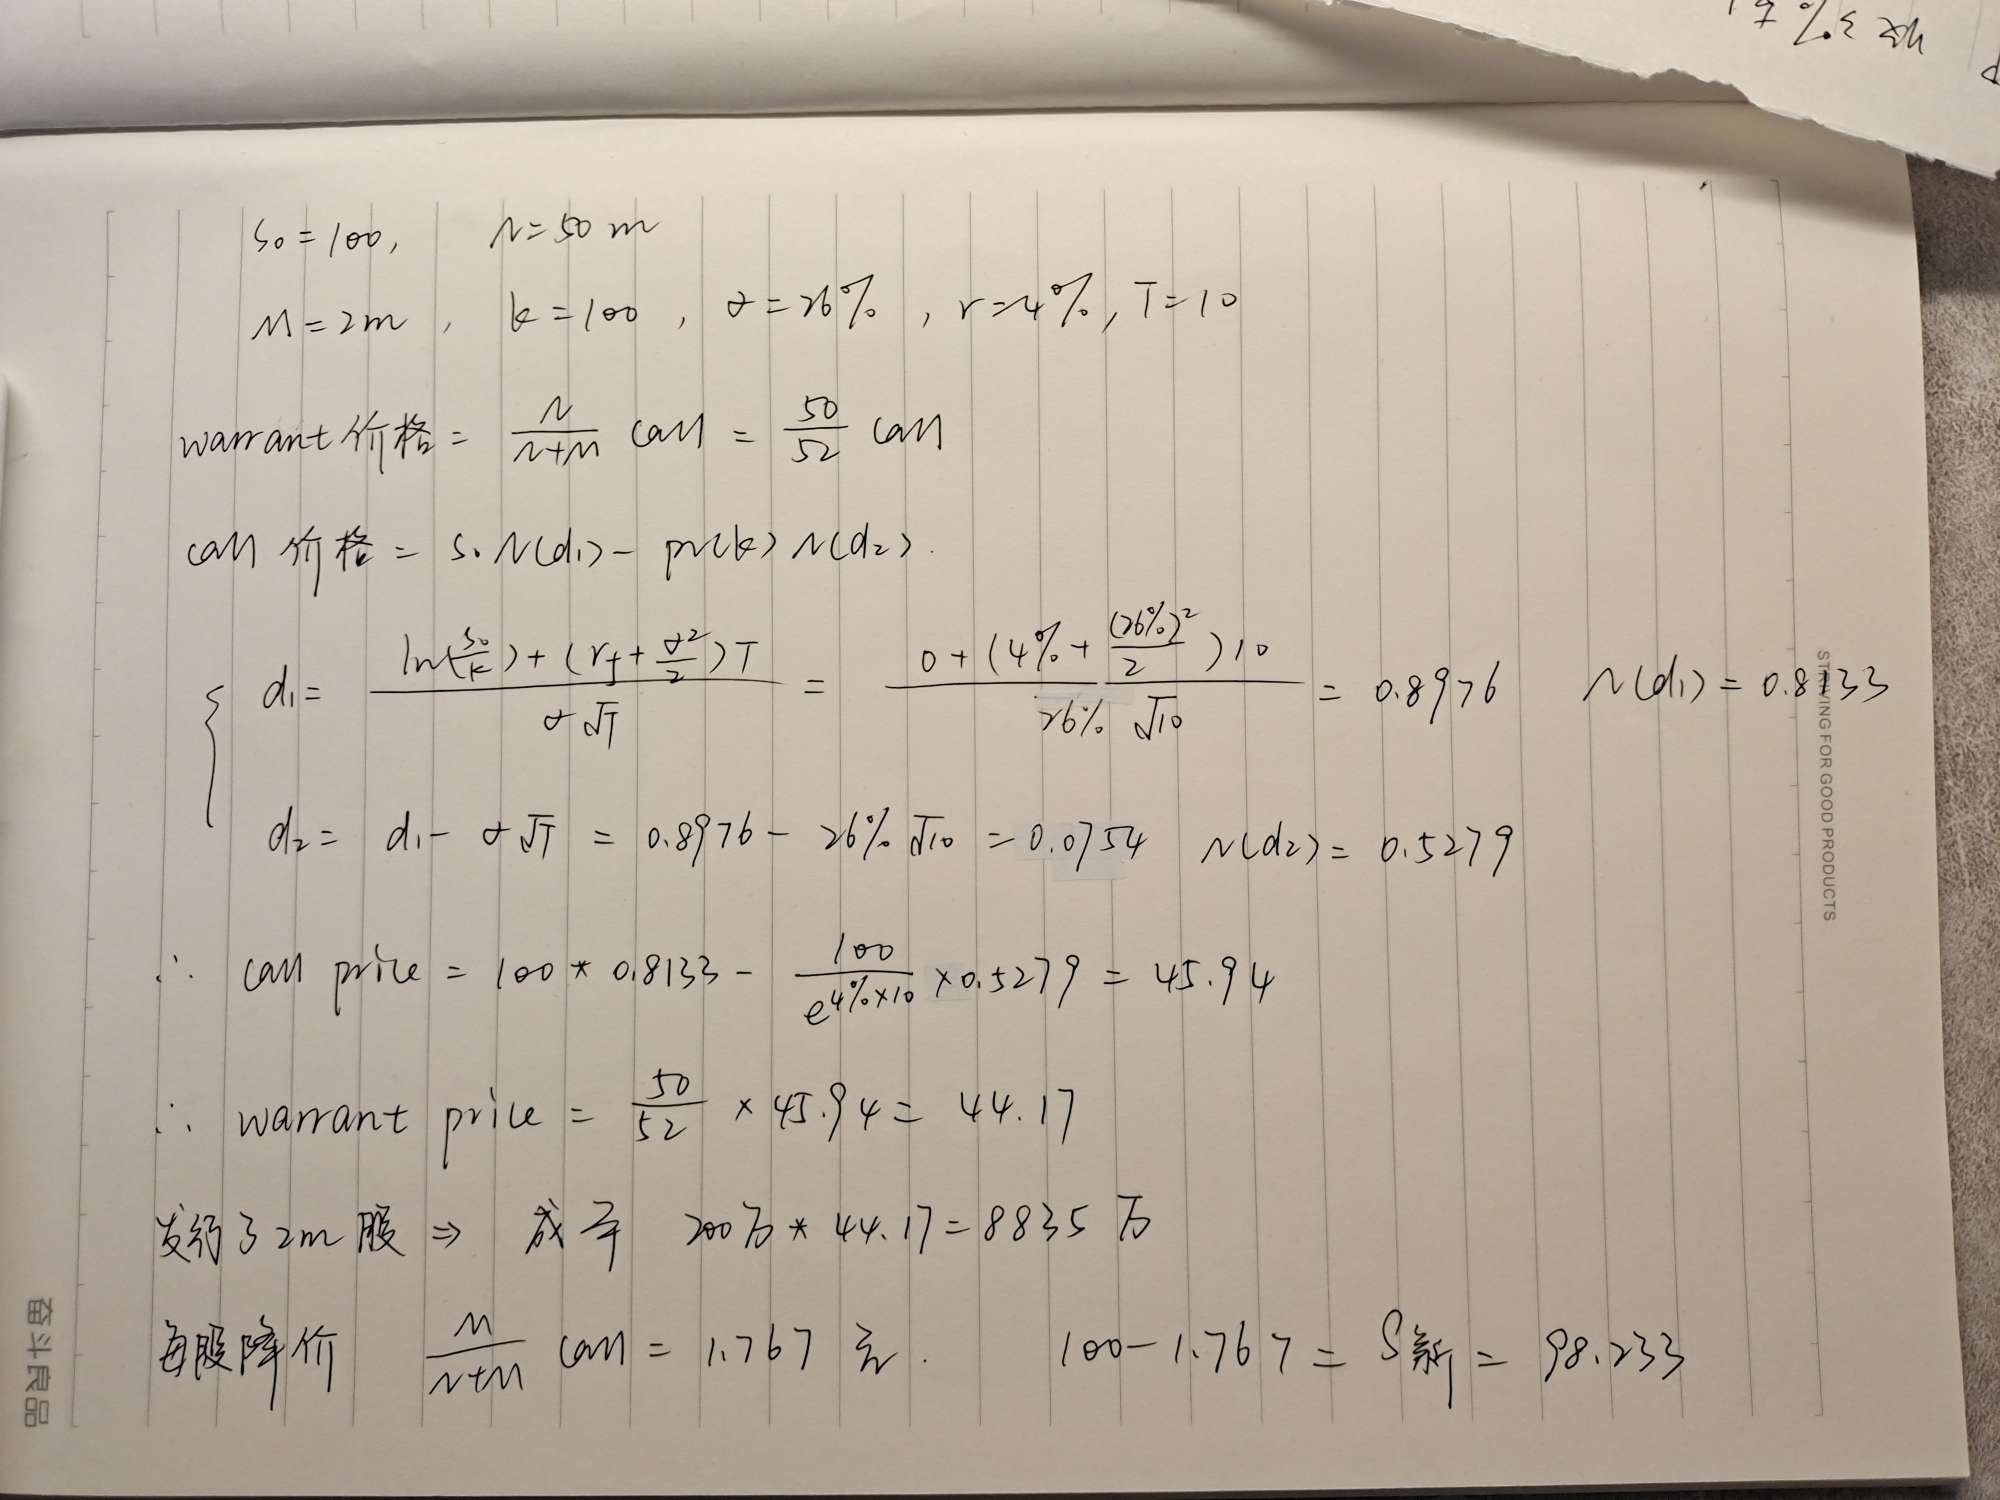 S₀=100, N=50m
M=2m, k=100, σ=26%, r=4%, T=10
warrant价格= N/(N+M) call = 50/52 call
call 价格= S₀N(d₁)- pv(k)N(d₂).
d₁= (ln(S₀/k)+(rf+σ²/2)T)/(σ√T) = (0+(4%+(26%)²/2)10)/(26%√10) = 0.8976 N(d₁)=0.8133
d₂= d₁-σ√T = 0.8976-26%√10=0.0754 N(d₂)=0.5279
∴ call price = 100*0.8133- 100/e^(4%×10) ×0.5279=45.94
∴ warrant price = 50/52 *45.94= 44.17
发行了2m股⇒ 成本 200万*44.17=8835万
每股降价 M/(N+M) call=1.767元. 100-1.767=S新=98.233
STRIVING FOR GOOD PRODUCTS
奋斗良品